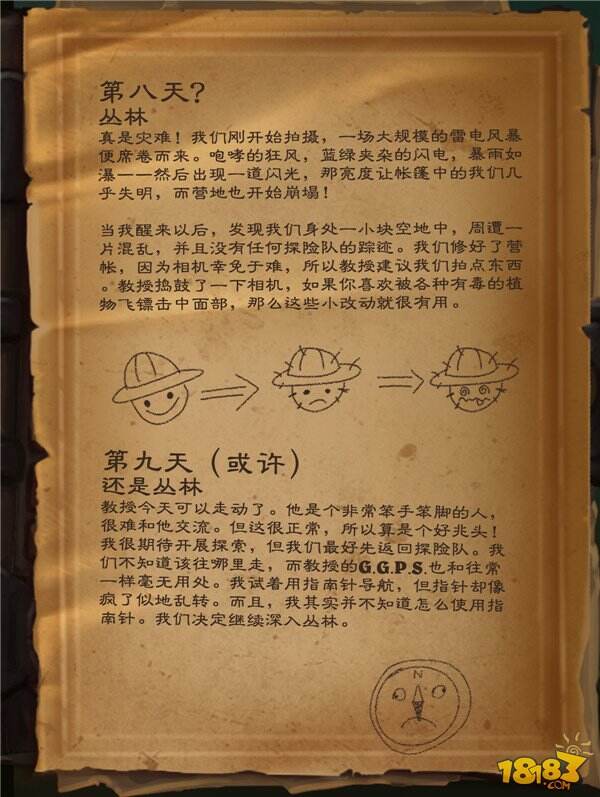 第八天?
丛林
真是灾难！我们刚开始拍摄，一场大规模的雷电风暴
便席卷而来。咆哮的狂风，蓝绿夹杂的闪电，暴雨如
瀑——然后出现一道闪光，那亮度让帐篷中的我们几
乎失明，而营地也开始崩塌！
当我醒来以后，发现我们身处一小块空地中，周遭一
片混乱，并且没有任何探险队的踪迹。我们修好了营
帐，因为相机幸免于难，所以教授建议我们拍点东西
。教授捣鼓了一下相机，如果你喜欢被各种有毒的植
物飞镖击中面部，那么这些小改动就很有用。
第九天（或许）
还是丛林
教授今天可以走动了。他是个非常笨手笨脚的人，
很难和他交流。但这很正常，所以算是个好兆头！
我很期待开展探索，但我们最好先返回探险队。我
们不知道该往哪里走，而教授的G.G.P.S.也和往常
一样毫无用处。我试着用指南针导航，但指针却像
疯了似地乱转。而且，我其实并不知道怎么使用指
南针。我们决定继续深入丛林。
N
18183
.COM